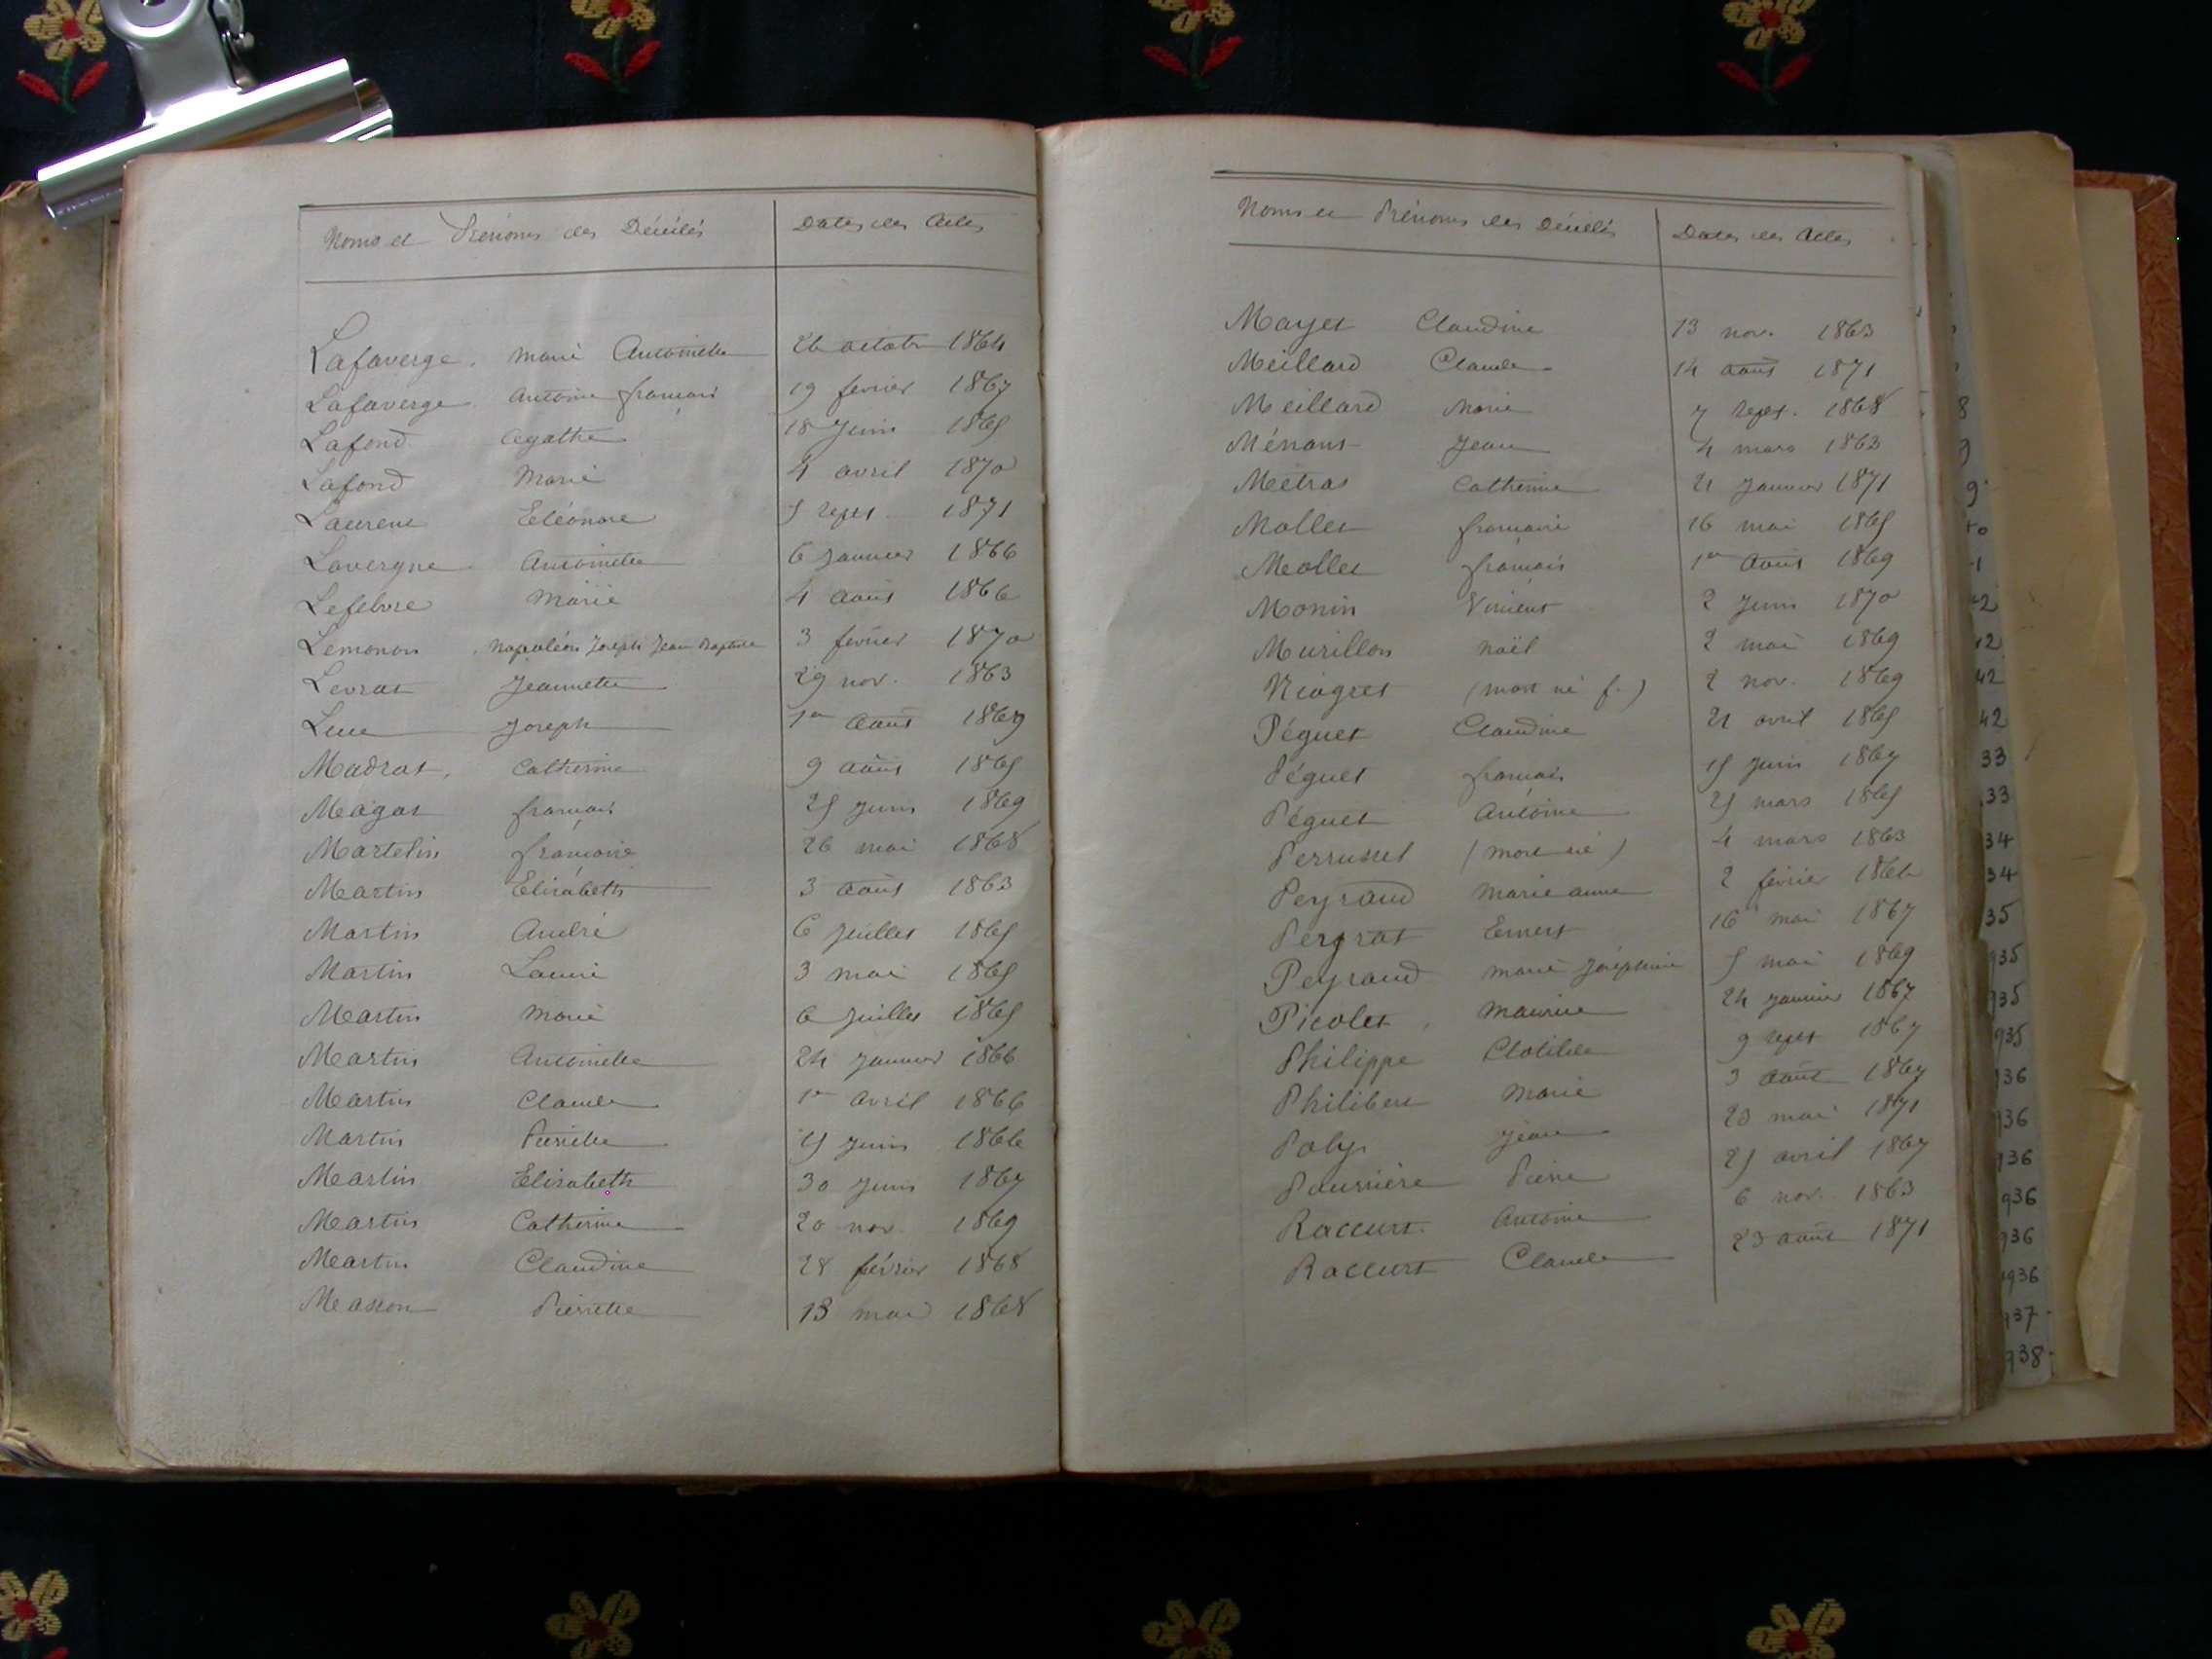 Noms et Prénoms des Décédés Dates des Actes
Lafaverge. Marie Antoinette 26 octobre 1864
Lafaverge Antoine françois 19 fevrier 1867
Lafond Agathe 18 Juin 1865
Lafond Marie 4 avril 1870
Laurent Eléonore 5 sept 1871
Lavergne Antoinette 6 Janvier 1866
Lefebvre Marie 4 Août 1866
Lemonon Napoléon Joseph Jean Baptiste 3 fevrier 1870
Levrat Jeannette 29 nov. 1863
Luc Joseph 1er Août 1869
Madrat, Catherine 9 août 1865
Magat françois 25 Juin 1869
Martelin françoise 26 mai 1868
Martin Elisabeth 3 Août 1863
Martin André 6 Juillet 1865
Martin 3 mai 1865
Martin Marie 6 Juillet 1865
Martin Antoinette 24 Janvier 1866
Martin Claude 1er Avril 1866
Martin Pierrette 15 Juin 1866
Martin Elisabeth 30 Juin 1867
Martin Catherine 20 nov. 1869
Martin Claudine 28 février 1868
Masson Pierrette 13 mai 1868
Noms et Prénoms des Décédés Dates des Actes
Mayet Claudine 13 nov. 1863
Meillard Claude 14 août 1871
Meillard Marie 7 sept. 1868
Ménant Jean 4 mars 1863
Métras Catherine 21 Janvier 1871
Mollet françoise 16 mai 1865
Mollet françois 1er Août 1869
Monin Vincent 2 Juin 1870
Murillon Noël 2 mai 1869
Niogret (mort né f.) 2 nov. 1869
Péguet Claudine 21 avril 1865
Péguet françois 15 Juin 1867
Péguet Antoine 25 mars 1865
Perrusset (mort né) 4 mars 1863
Peyraud Marie anne 2 février 1866
Peyrat Ernest 16 mai 1867
Peyraud Marie Joséphine 5 mai 1869
Picolet, Maurice 24 Janvier 1867
Philippe Clotilde 9 sept 1867
Philibert Marie 3 Août 1867
Poly Jean 23 mai 1871
Pierre 25 avril 1867
Raccurt. Antoine 6 nov. 1863
Raccurt Claude 23 août 1871
8
9
42
42
42
33
33
34
34
35
935
935
935
936
936
936
936
936
936
937
938